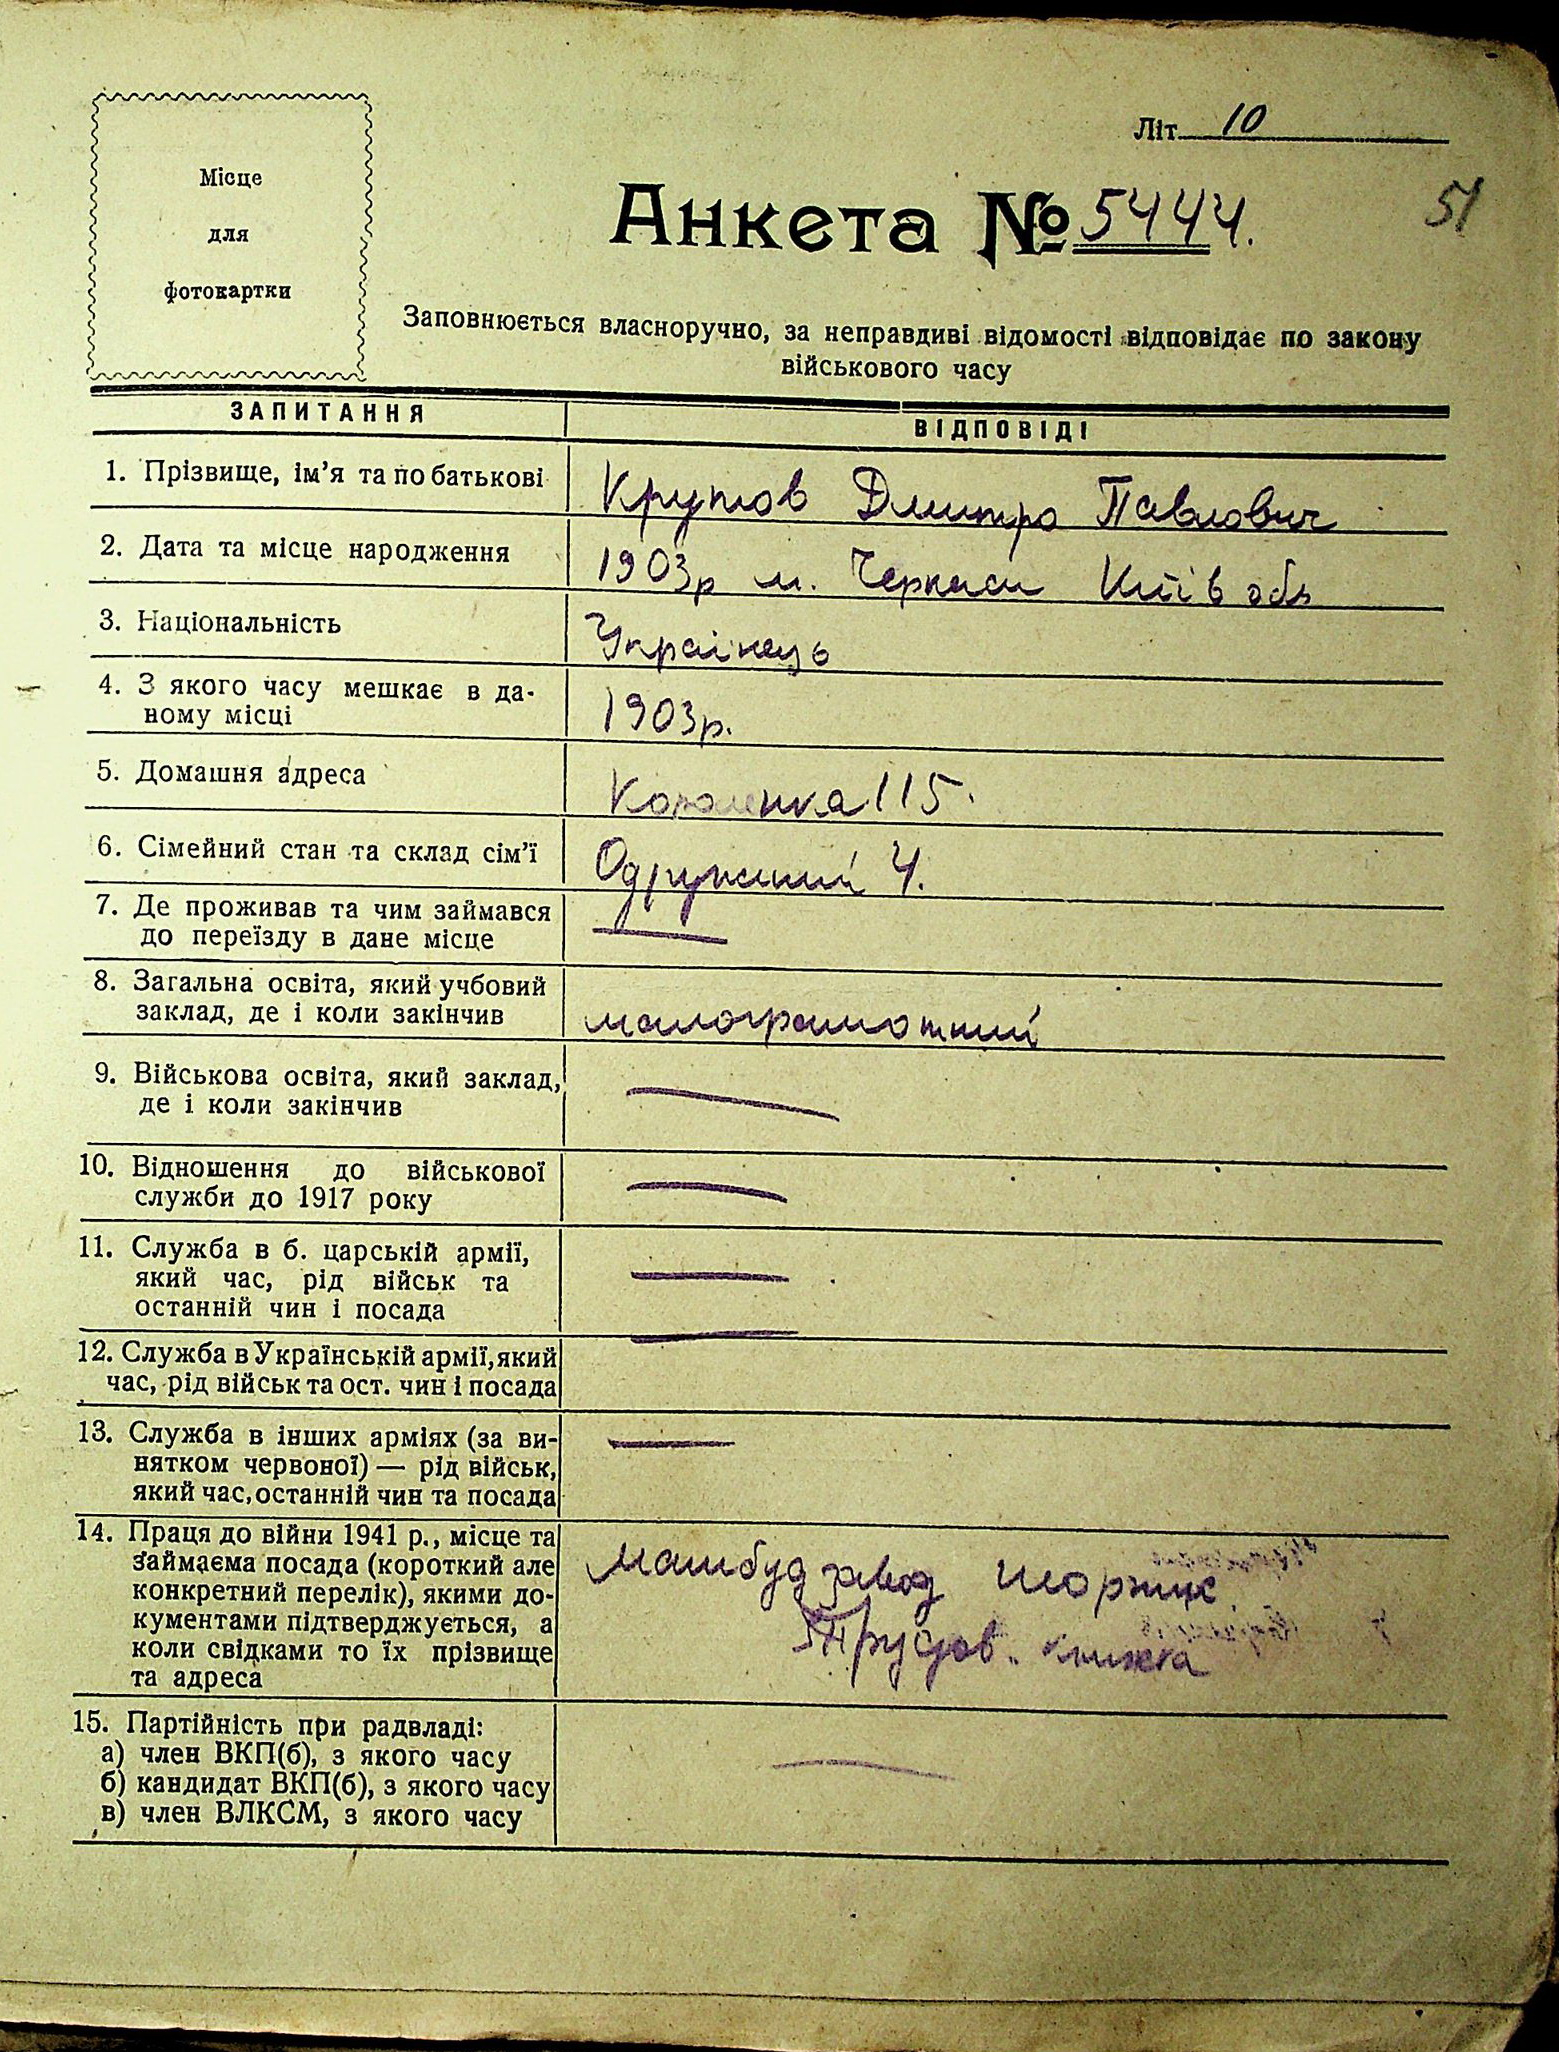 Літ. 10
51
Місце
для
фотокартки
Анкета № 5444.
Заповнюється власноручно, за неправдиві відомості відповідає по закону
військового часу
ЗАПИТАННЯ
ВІДПОВІДІ
1. Прізвище, ім’я та по батькові
Крутов Дмитро Павлович
2. Дата та місце народження
1903р м. Черкаси Київ обл
3. Національність
Українець
4. З якого часу мешкає в да-
ному місці
1903р.
5. Домашня адреса
Короленка 115.
6. Сімейний стан та склад сім’ї
Одружений 4.
7. Де проживав та чим займався
до переїзду в дане місце
—
8. Загальна освіта, який учбовий
заклад, де і коли закінчив
малограмотний
9. Військова освіта, який заклад,
де і коли закінчив
—
10. Відношення до військової
служби до 1917 року
—
11. Служба в б. царській армії,
який час, рід військ та
останній чин і посада
—
12. Служба в Українській армії, який
час, рід військ та ост. чин і посада
—
13. Служба в інших арміях (за ви-
нятком червоної) — рід військ,
який час, останній чин та посада
—
14. Праця до війни 1941 р., місце та
займаєма посада (короткий але
конкретний перелік), якими до-
кументами підтверджується, а
коли свідками то їх прізвище
та адреса
Машбуд завод
Трудов. книжка
15. Партійність при радвладі:
а) член ВКП(б), з якого часу
б) кандидат ВКП(б), з якого часу
в) член ВЛКСМ, з якого часу
—